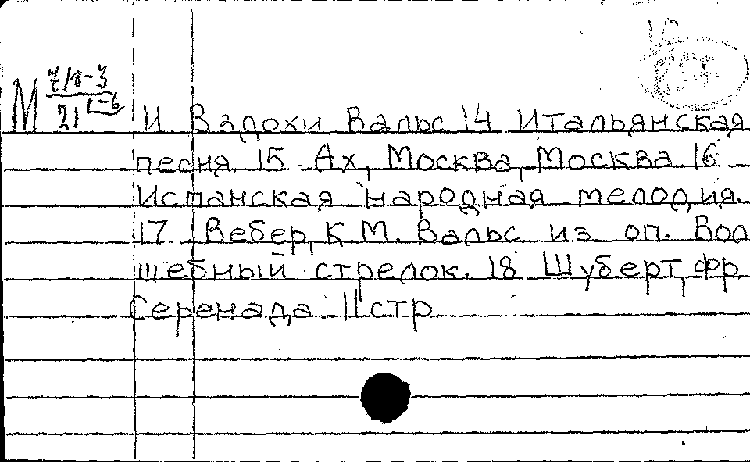 М
21
И Вздохи Вальс 14 Итальянская
песня 15 Ах, Москва, Москва 16
Испанская народная мелодия.
17. Вебер, К. М. Вальс из оп. Вол
шебный стрелок. 18 Шуберт, Фр
Серенада 11 стр